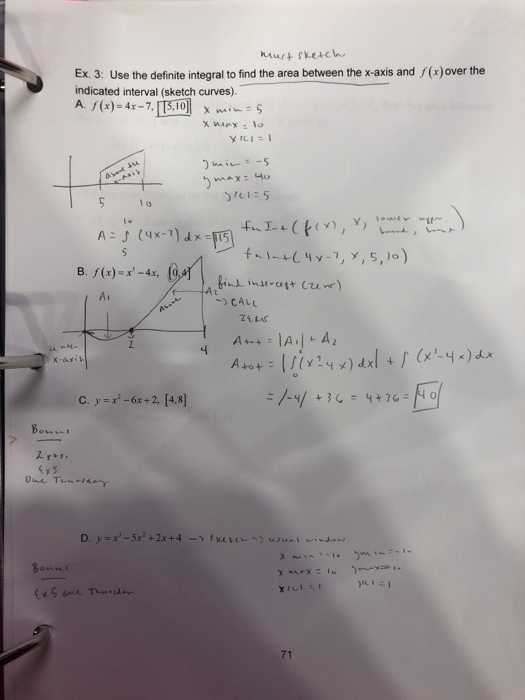 must sketch
Ex. 3: Use the definite integral to find the area between the x-axis and f(x) over the
indicated interval (sketch curves).
A. f(x) = 4x − 7, [5,10] x min = 5
x max = 10
xscl = 1
y min = -5
y max = 40
yscl = 5
above the
x-axis
5 10
A = ∫₅¹⁰ (4x-7) dx = 115
fnInt (f(x), x, lower bound, upper bound)
fnInt (4x-7, x, 5, 10)
B. f(x) = x³ − 4x, [0,4]
find intercept (zero)
→ CALC
ZERO
A₁ Above A₂
2 4
x-axis
Atot = |A₁| + A₂
Atot = |∫₀² (x³-4x) dx| + ∫ (x³-4x) dx
= |-4| + 36 = 4+36 = 40
C. y = x² − 6x + 2, [4,8]
Bonus
2 pts.
Ex5
Due Thursday
D. y = x³ − 5x² + 2x + 4 → sketch → usual window
x min = -10 ymin = -10
x max = 10 ymax = 10
xscl = 1 yscl = 1
Bonus
Ex5 due Thursday
71